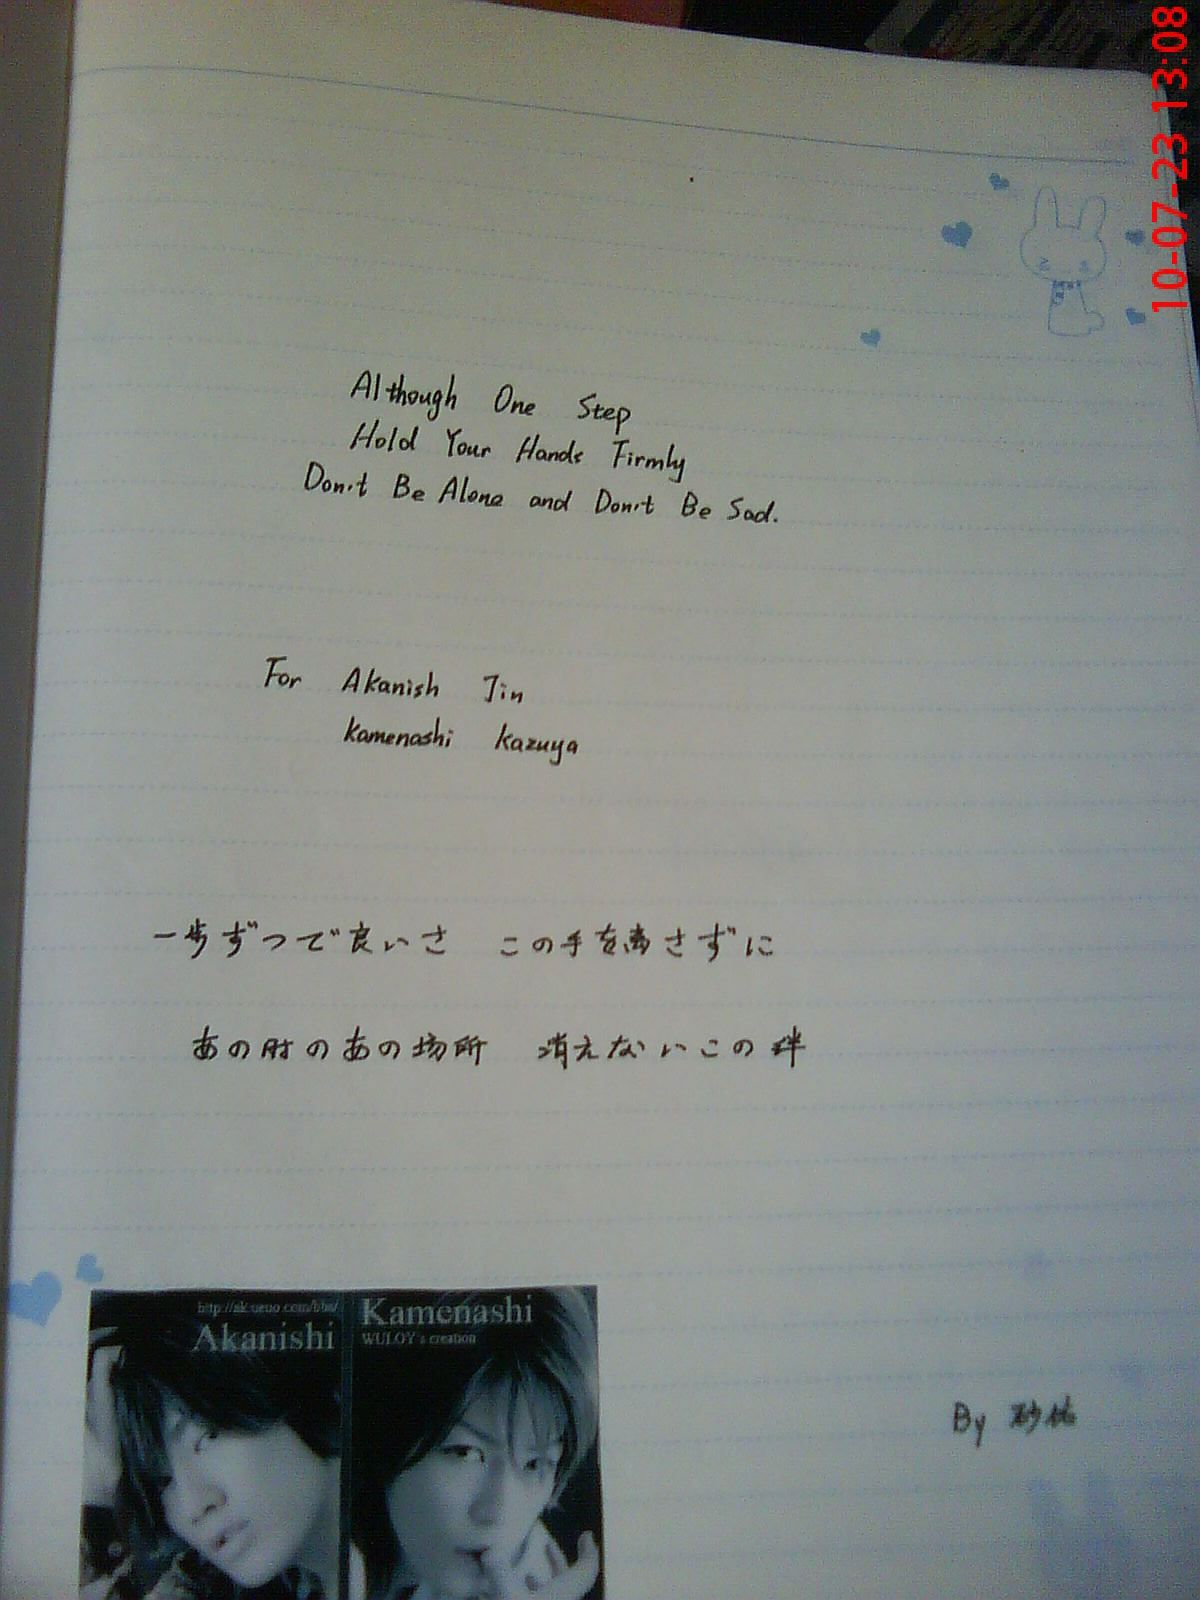 10-07-23 13:08
Although One Step
Hold Your Hands Firmly
Don't Be Alone and Don't Be Sad.
For Akanish Jin
Kamenashi Kazuya
一歩ずつで良いさ この手を离さずに
あの时のあの場所 消えないこの絆
http://ak.ueuo.com/bbs/
Akanishi
Kamenashi
WULOY's creation
By 砂佑